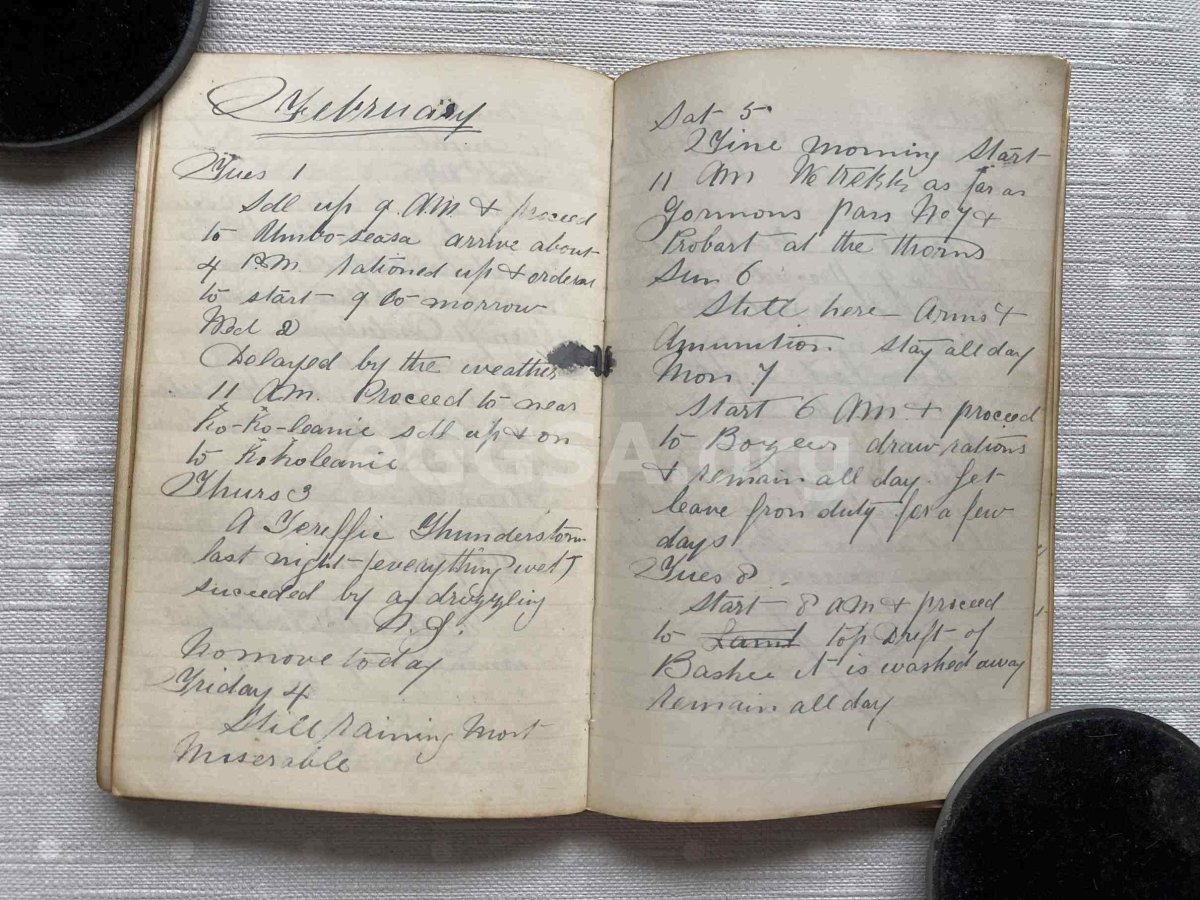 February
Tues 1
Sdl up 9. AM & proceed
to Umvo-seasa arrive about
4 P.M. rationed up & orders
to start 9 to morrow
Wed 2
Delayed by the weather
11 AM. Proceed to near
Ko-Ko-leanie sdl up & on
to Kokoleanie
Thurs 3
A Tereffic Thunderstorm
last night (everything wet)
succeeded by a drizzling
No move today
Friday 4
Still raining Most
Miserable
Sat 5
Fine morning Start
11 AM We trekk as far as
Gormons pass No 4 &
Probart at the thorns
Sun 6
Still here Arms &
Amunition stay all day
Mon 7
Start 6 AM & proceed
to Boyeus draw rations
& remain all day. Get
leave from duty for a few
days
Tues 8
Start 8 AM & proceed
to top Drift of
Bashee it is washed away
Remain all day
eGGSA.org